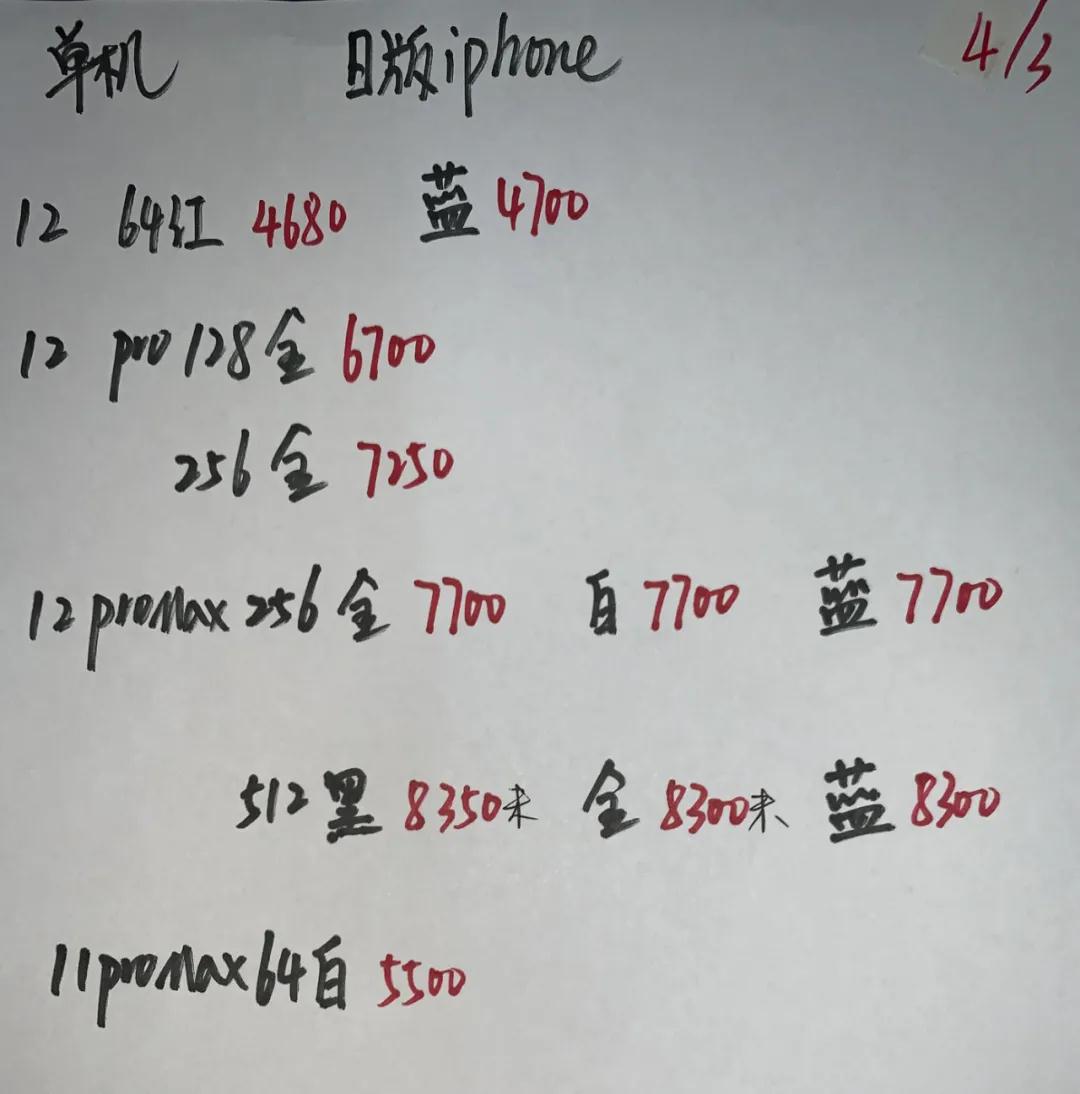 单机 日版iphone 4/3
12 64红 4680 蓝 4700
12 pro 128金 6700
256金 7250
12proMax 256金 7700 白 7700 蓝 7700
512黑 8350未 金 8300未 蓝 8300
11proMax64白 5500